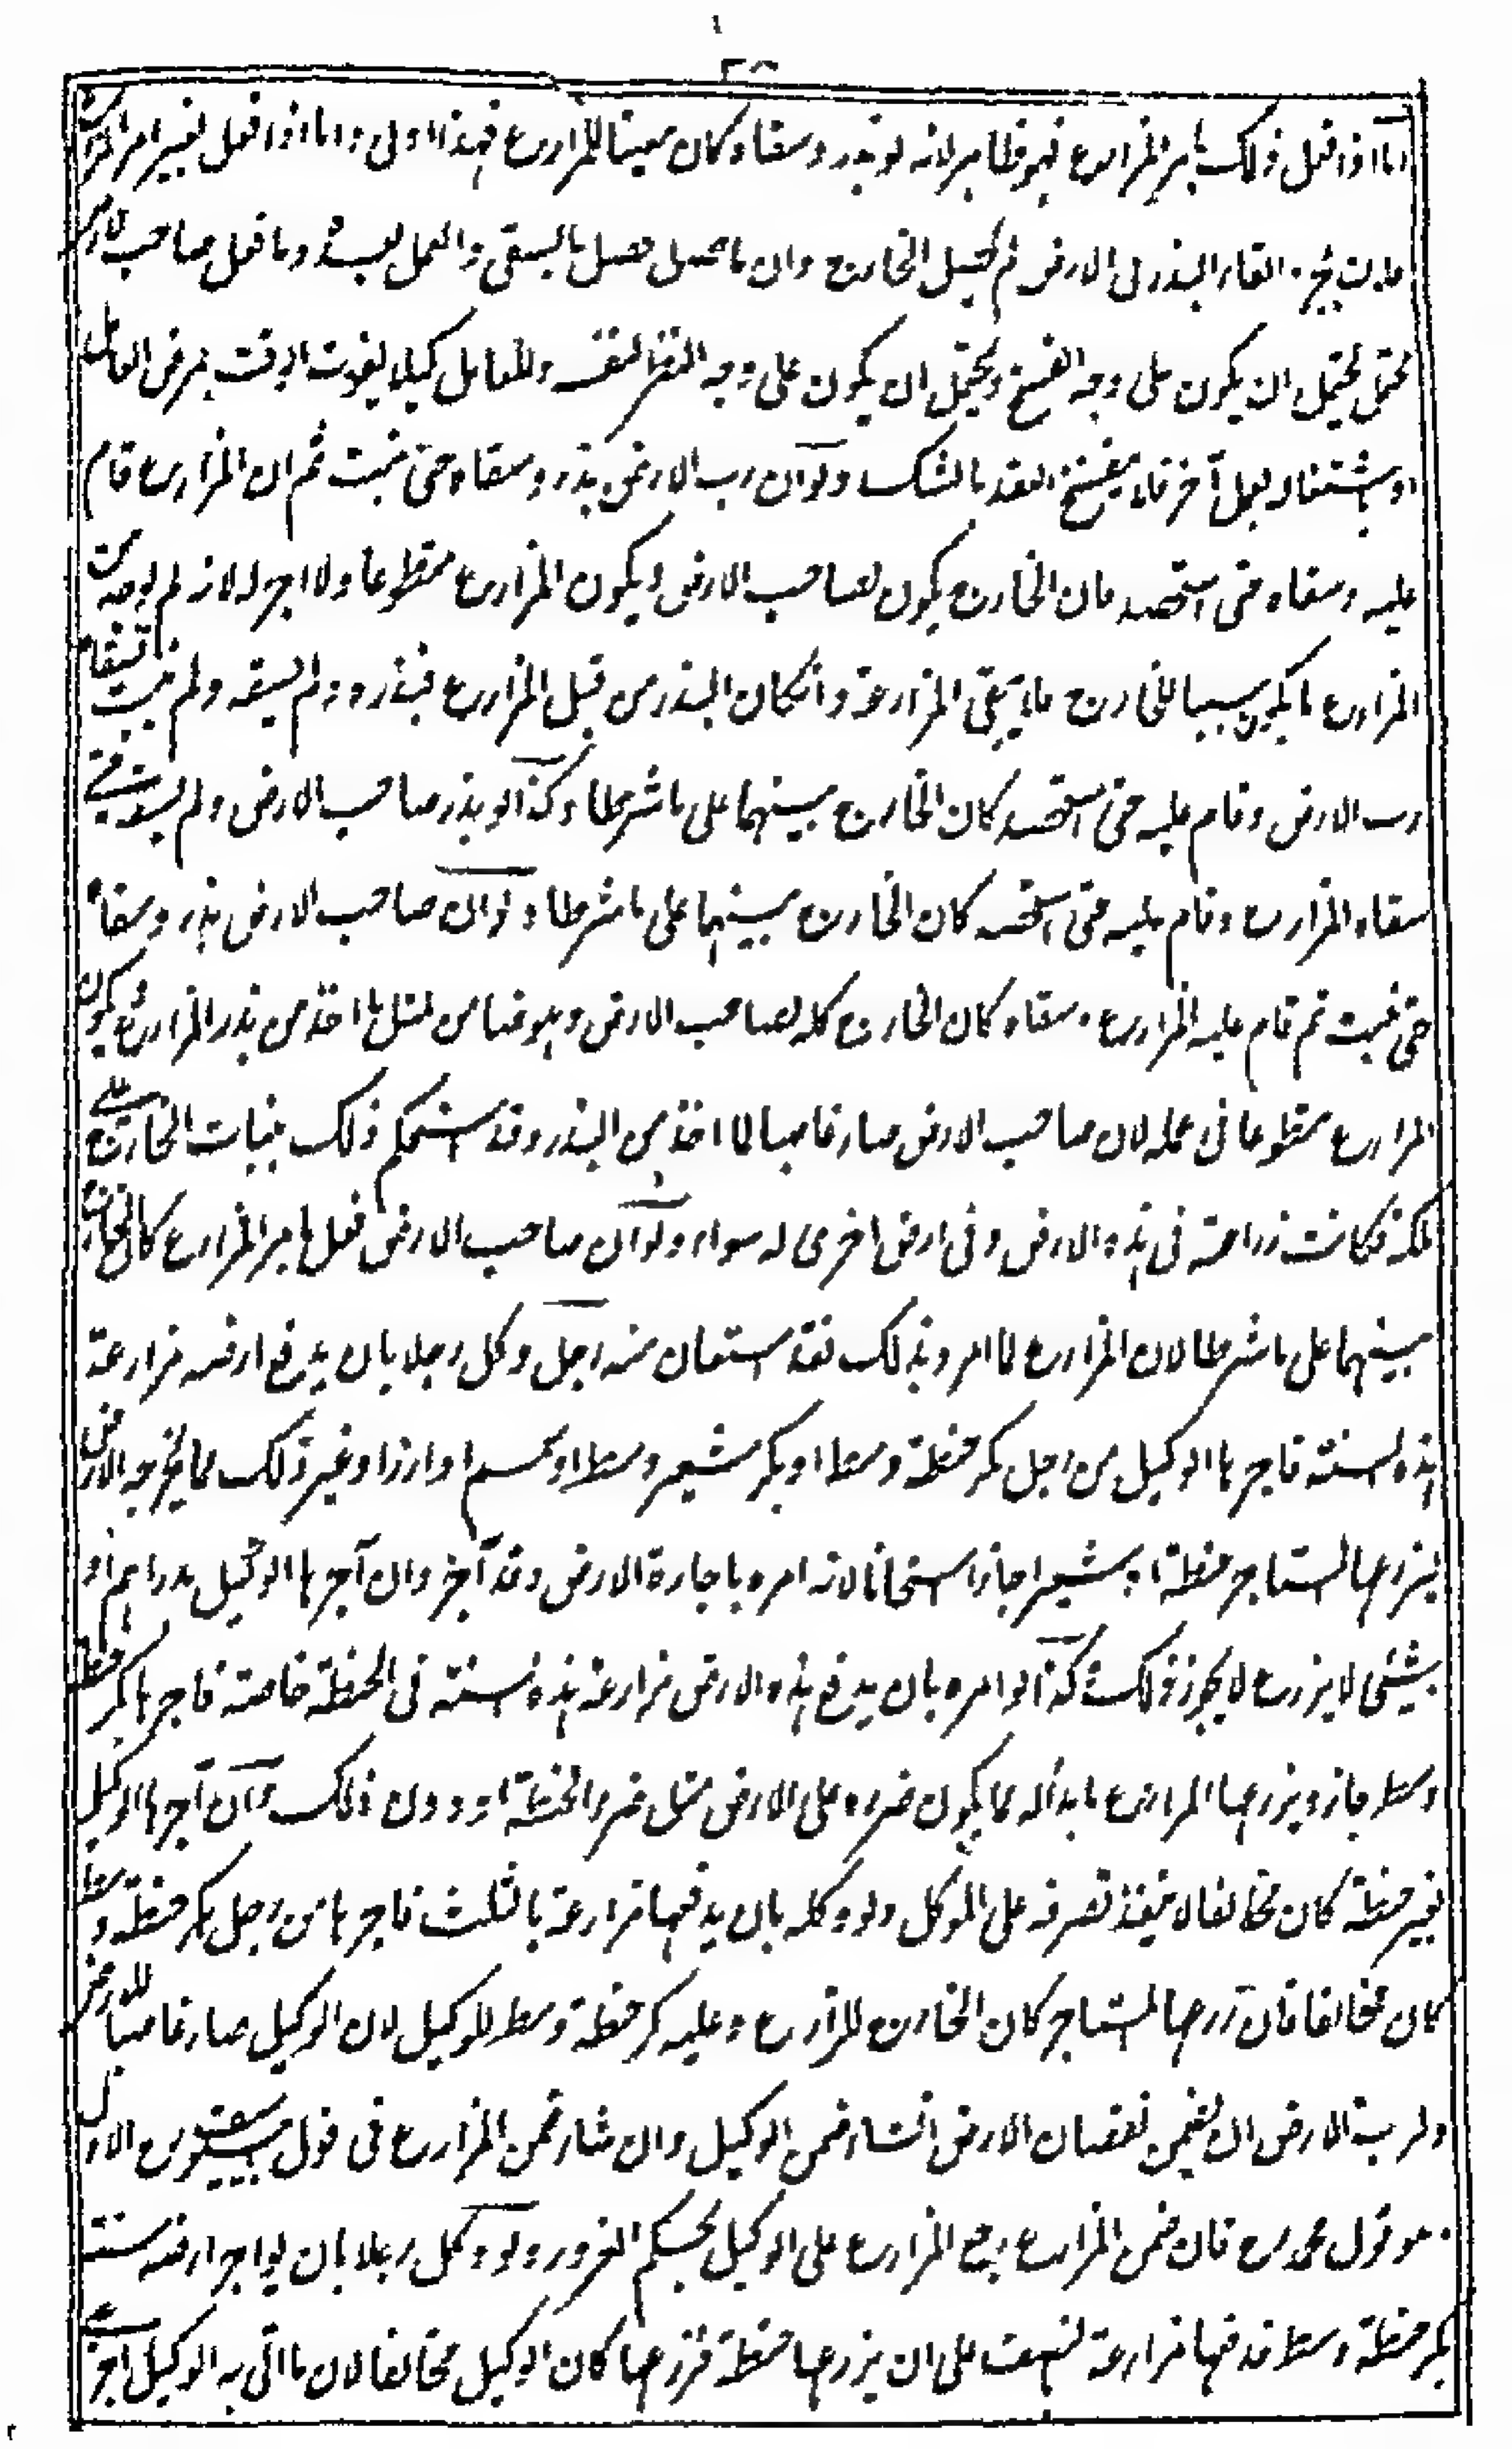 اما اذا فعل ذلك بامر المزارع فهو ظاهر لانه لو بذر وسقاه كان معينا للمزارع فهذا اولى واما اذا فعل بغير امر المزارع
فلان بمجرد القاء البذر فى الارض لم يحصل الخارج وان ما يحصل حصل بالسقى والعمل بعده وما فعل صاحب الارض
محتمل يحتمل ان يكون على وجه الفسخ ويحتمل ان يكون على وجه النظر لنفسه وللعامل كيلا يفوت الوقت بمرض العامل
او اشتغاله بعمل آخر فلا ينفسخ العقد بالشك ولو ان رب الارض بذر وسقاه حتى نبت ثم ان المزارع قام
عليه وسقاه حتى استحصد فان الخارج يكون لصاحب الارض ويكون المزارع متطوعا ولا اجر له لانه لم يوجد من
المزارع ما يكون سببا للخارج فلا تبقى المزارعة وان كان البذر من قبل المزارع فبذره ولم يسقه ولم ينبت فسقاه
رب الارض وقام عليه حتى استحصد كان الخارج بينهما على ما شرطا وكذا لو بذر صاحب الارض ولم يسقه حتى
سقاه المزارع وقام عليه حتى استحصد كان الخارج بينهما على ما شرطا ولو ان صاحب الارض بذر وسقاه
حتى نبت ثم قام عليه المزارع وسقاه كان الخارج كله لصاحب الارض وهو ضامن لمثل ما اخذ من بذر المزارع ويكون
المزارع متطوعا فى عمله لان صاحب الارض صار غاصبا لما اخذ من البذر وقد استحكم ذلك بنبات الخارج على
ملكه فكانت زراعته فى هذه الارض وفى ارض اخرى له سواء ولو ان صاحب الارض فعل بامر المزارع كان الخارج
بينهما على ما شرطا لان المزارع لما امره بذلك فقد استعان منه رجل وكل رجلا بان يدفع ارضه مزارعة
هذه السنة فاجرها الوكيل من رجل بكر حنطة وسط او بكر شعير وسط او سمسم او ارز او غير ذلك مما يخرجه الارض
ليزرعها المستاجر حنطة او شعيرا جاز استحسانا لانه امره باجارة الارض وقد آجر وان آجرها الوكيل بدراهم او
بشئ لا يزرع لا يجوز ذلك وكذا لو امره بان يدفع هذه الارض مزارعة هذه السنة فى الحنطة خاصة فاجرها بكر حنطة
وسط جاز ويزرعها المزارع ما بدا له مما يكون ضرره على الارض مثل ضرر الحنطة او دون ذلك وان آجرها الوكيل
بغير حنطة كان مخالفا لا ينفذ تصرفه على الموكل ولو وكله بان يدفعها مزارعة بالثلث فاجرها من رجل بكر حنطة وسط
كان مخالفا فان زرعها المستاجر كان الخارج للمزارع وعليه كر حنطة وسط للوكيل لان الوكيل صار غاصبا للارض
ولرب الارض ان يضمن نقصان الارض ان شاء ضمن الوكيل وان شاء ضمن المزارع فى قول ابى يوسف رح الاول
وهو قول محمد رح فان ضمن المزارع رجع المزارع على الوكيل بحكم الغرور ولو وكل رجلا بان يواجر ارضه سنة
بكر حنطة وسط فدفعها مزارعة بالنصف على ان يزرعها حنطة فزرعها كان الوكيل مخالفا لان ما اتى به الوكيل